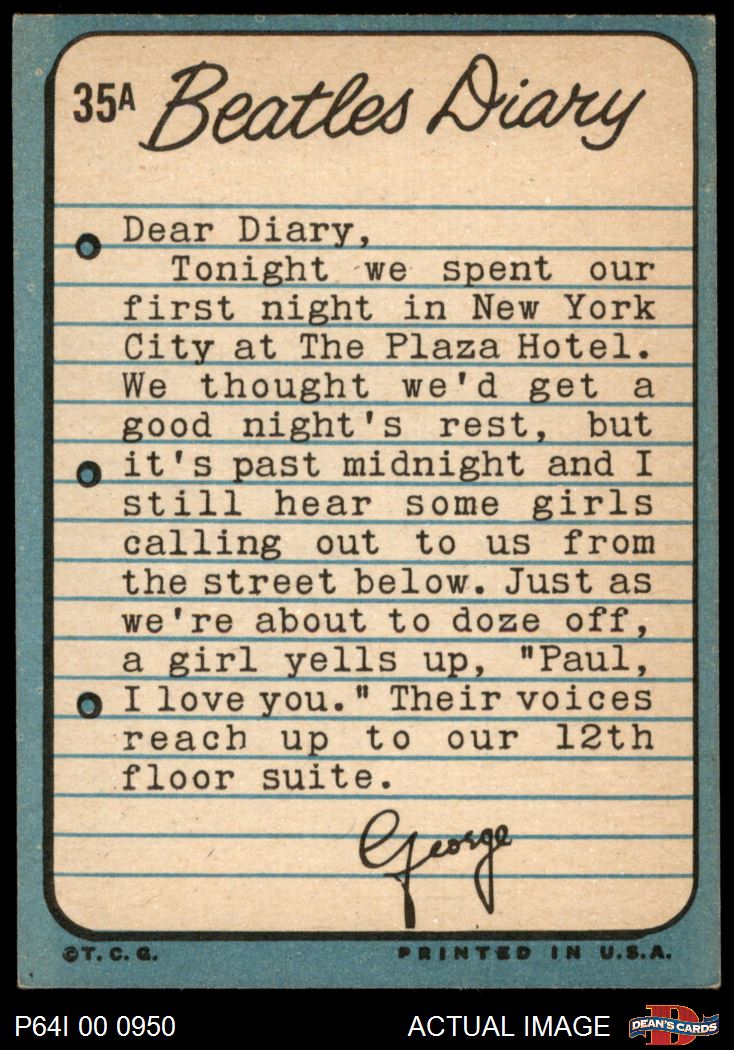 35A Beatles Diary
Dear Diary,
Tonight we spent our
first night in New York
City at The Plaza Hotel.
We thought we'd get a
good night's rest, but
it's past midnight and I
still hear some girls
calling out to us from
the street below. Just as
we're about to doze off,
a girl yells up, "Paul,
I love you." Their voices
reach up to our 12th
floor suite.
George
©T.C.G. PRINTED IN U.S.A.
P64I 00 0950 ACTUAL IMAGE D DEAN'S CARDS